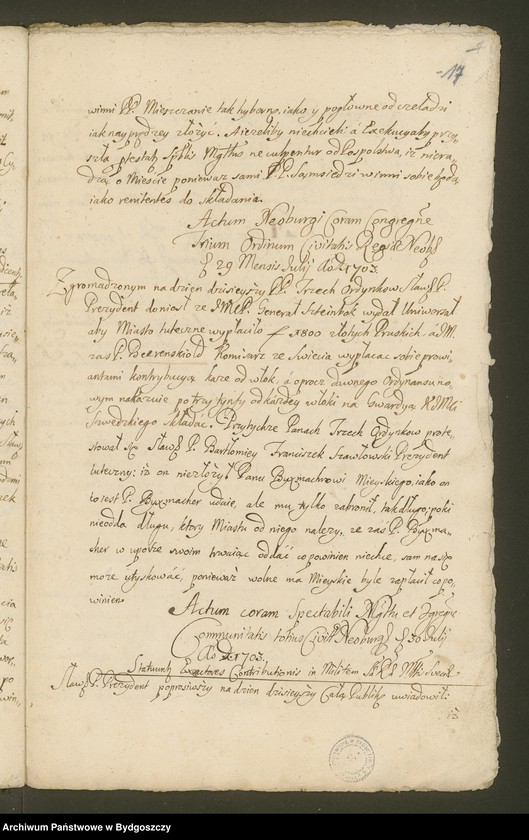 17
winni PP. Mieszczanie tak hyberno, iako y pogłowne od czeladzi
iak nayprędzey złożyc. A ieżeliby niechcieli a Exekucyaby przy„
szła, Magttus ne culpentur od Pospolstwa, iż nie ra„
dzą o Miescie ponieważ sami PP. Sąmsiedzi winni sobie będą
iako renitentes do składania.
Actum Neoburgi Coram Congregne
Trium Ordinum Civitatis Regiæ Neobg
29 Mensis Julij Ao 1703.
Zgromadzonym na dzien dzisieyszy PP. Trzech Ordynkow Sław. P.
Prezydent doniosł ze JMP. Generał Szteinbok wydał Uniwersał
aby Miasto tuteczne wypłaciło f 1800 złotych Pruskich. a JM.
zas P. Komisarz ze Swiecia wypłacac sobie prowi„
antami kontrybucyą kaze od włok, á oprocz dawnego Ordynansu no„
wym nakazuie po trzy tynfy od każdey włoki na Gwardyą
Szwedzkiego składac. Przytychze Panach Trzech Ordynkow prote„
stował się Sław. P. Bartłomiey Franciszek Szawłowski Prezydent
tuteczny: iż on niezłożył Pana Buxmachrowi Mieyskiego, iako on
to iest P. Buxmacher udaie, ale mu tylko zabronił, tak długo; poki
nieodda długu, ktory Miastu od niego należy, ze zas P. Buxma„
cher w uporze swoim trwaiąc oddać co powinien niechce, sam na się
może utyskować, ponieważ wolne ma Mieyskie byle zapłacił co po„
winien.
Actum coram Spectabili Magttu et
Communitatis totius Civit Neoburg 30 Julij
Ao 1703.
Statuunt Exactores Contributionis in Militem
Sław. P. Prezydent poprosiwszy na dzien dzisieyszy Całą Publikę uwiadomił:
iż
Archiwum Państwowe w Bydgoszczy